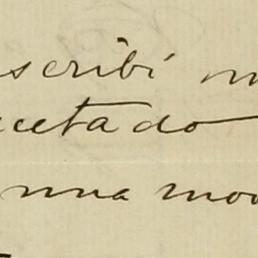 scribí m
cetado
una mo